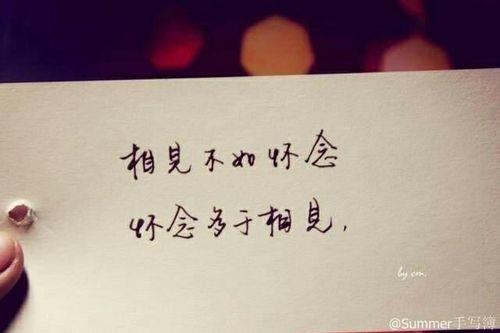 相見不如怀念
怀念多于相見.
by cm.
@Summer手写簿